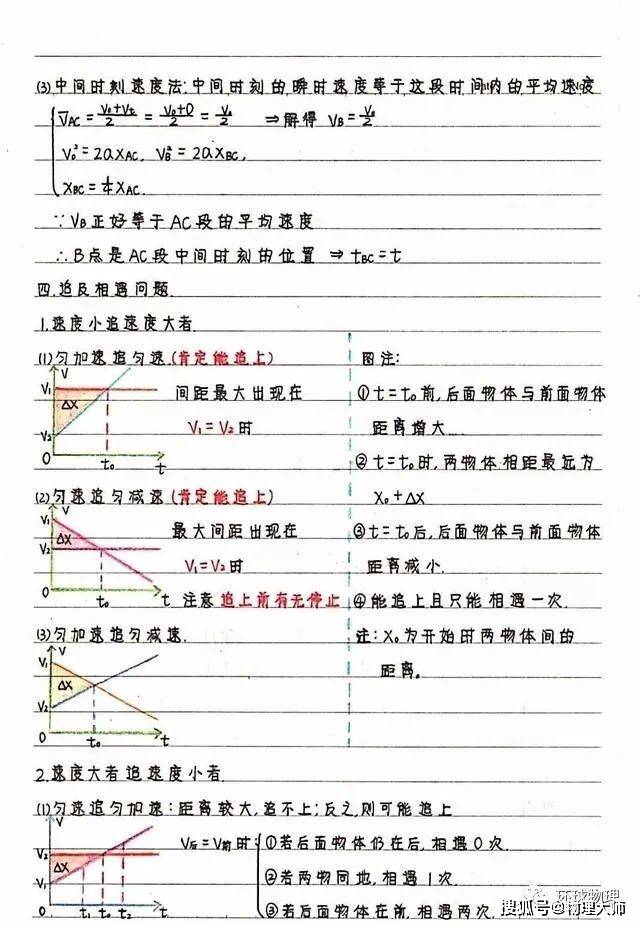 (3)中间时刻速度法:中间时刻的瞬时速度等于这段时间内的平均速度
V̄AC = (V₀+Vt)/2 = (V₀+0)/2 = V₀/2 ⇒解得 VB = V₀/2
V₀² = 2aXAC, VB² = 2aXBC,
XBC = 1/4 XAC.
∵ VB正好等于AC段的平均速度
∴ B点是AC段中间时刻的位置 ⇒ tBC = t
四.追及相遇问题.
1.速度小追速度大者
(1)匀加速追匀速(肯定能追上)
V
V₁
ΔX
V₂
0
t₀
t
间距最大出现在
V₁=V₂时
(2)匀速追匀减速(肯定能追上)
V
V₁
ΔX
V₂
0
t₀
t
最大间距出现在
V₁=V₂时
注意 追上前有无停止
(3)匀加速追匀减速.
V
V₁
ΔX
V₂
0
t₀
t
图注:
①t=t₀前,后面物体与前面物体
距离增大
②t=t₀时,两物体相距最远为
X₀+ΔX
③t=t₀后,后面物体与前面物体
距离减小.
④能追上且只能相遇一次.
注:X₀为开始时两物体间的
距离。
2.速度大者追速度小者.
(1)匀速追匀加速:距离较大,追不上;反之,则可能追上
V
V₂
ΔX
V₁
0
t₁
t₀
t₂
t
V后=V前时:
①若后面物体仍在后,相遇0次.
②若两物同地,相遇1次.
③若后面物体在前,相遇两次.
环球物理
搜狐号@物理大师